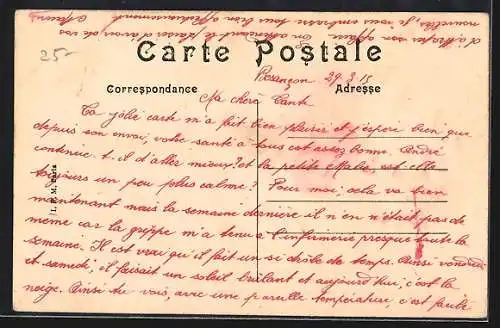 25-
Carte Postale
Correspondance
Adresse
L. P. M. Paris
Besançon 29.3.15
Ma chère Tante
Ta jolie carte m'a fait bien plaisir et j'espère bien que
depuis son envoi, votre santé à tous est assez bonne. André
continue-t-il d'aller mieux? et la petite est-elle
toujours un peu plus calme? Pour moi, cela va bien
maintenant mais la semaine dernière il n'en n'était pas de
même car la grippe m'a tenu à l'infirmerie presque toute la
semaine. Il est vrai qu'il fait un si drôle de temps. Ainsi vendredi
et samedi, il faisait un soleil brûlant et aujourd'hui, c'est la
neige. Ainsi tu vois, avec une pareille température, c'est facile
d'attraper son affaire. En attendant le plaisir d'avoir de vos
nouvelles, je vous embrasse tous bien affectueusement.